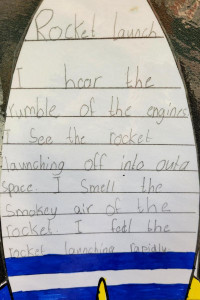 Rocket launch
I hear the
rumble of the engines
I see the rocket
launching off into outa
space. I smell the
smokey air of the
rocket. I feel the
rocket launching rapidly.